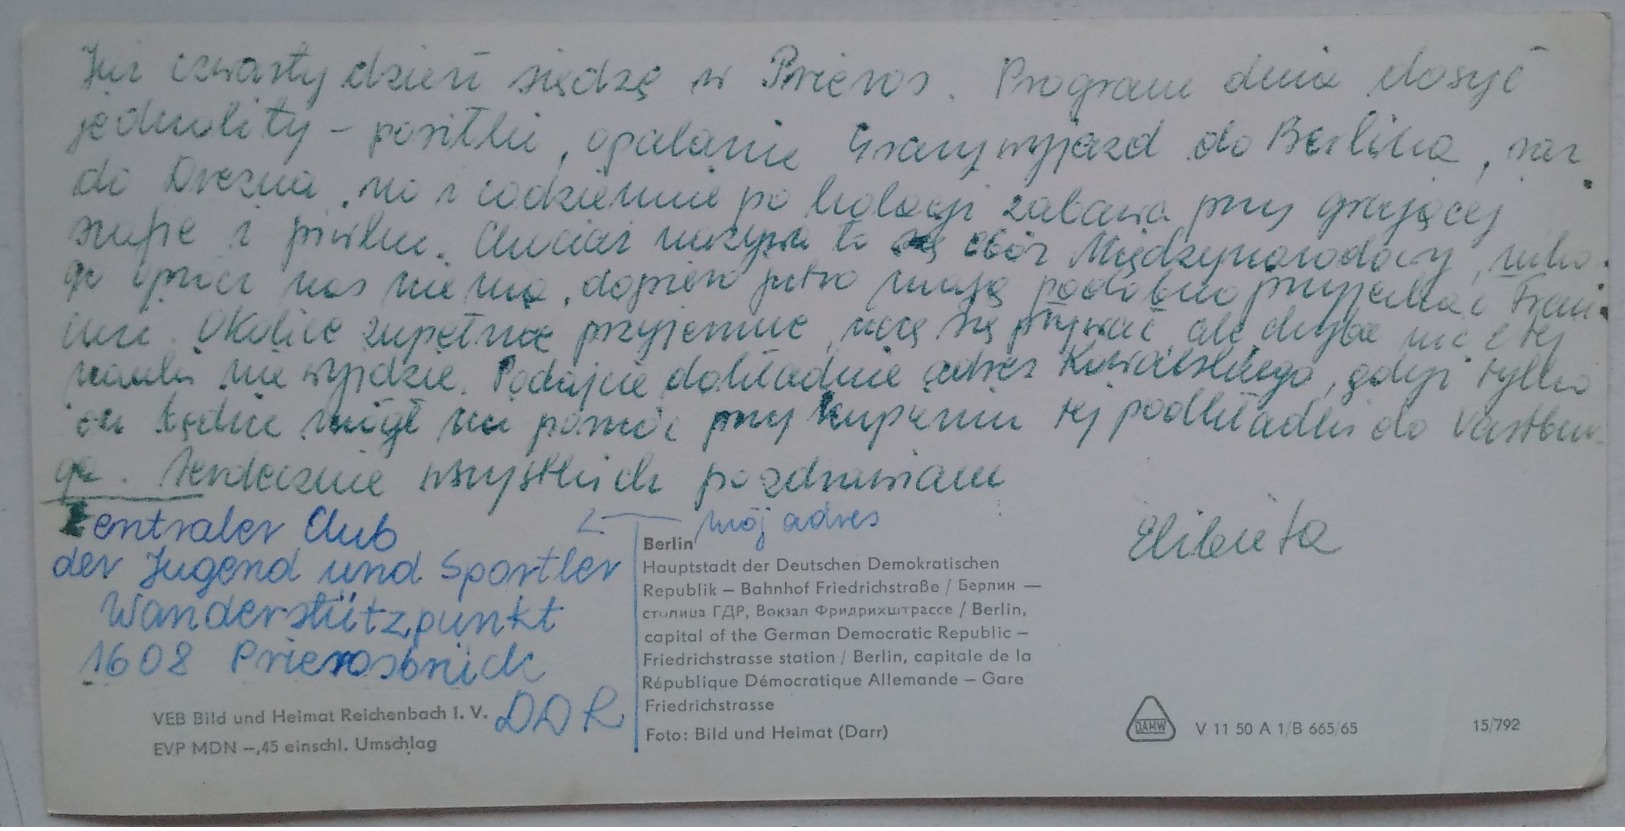 Już czwarty dzień siedzę w Prieros. Program dnia dosyć
jednolity – posiłki, opalanie wyjazd do Berlina, raz
do Drezna, no i codziennie po kolacji zabawa przy grającej
szafie i piwku. Chociaż nazywa to się Obóz Międzynarodowy, niko-
go oprócz nas nie ma, dopiero jutro mają podobno przyjechać Fran-
cuzi. Okolice zupełnie przyjemne, uczę się pływać ale chyba nic z tej
nauki nie wyjdzie. Podajcie dokładnie adres Kowalskiego, gdyż tylko
on będzie mógł mi pomóc przy kupieniu tej podkładki do Vartbur-
ga. Serdecznie wszystkich pozdrawiam
Elżbieta
mój adres
Zentraler Club
der Jugend und Sportler
Wanderstützpunkt
1608 Prierosbrück
DDR
VEB Bild und Heimat Reichenbach i. V.
EVP MDN –,45 einschl. Umschlag
Berlin
Hauptstadt der Deutschen Demokratischen
Republik – Bahnhof Friedrichstraße / Берлин —
столица ГДР, Вокзал Фридрихштрассе / Berlin,
capital of the German Democratic Republic –
Friedrichstrasse station / Berlin, capitale de la
République Démocratique Allemande – Gare
Friedrichstrasse
Foto: Bild und Heimat (Darr)
DAMW
V 11 50 A 1/B 665/65
15/792